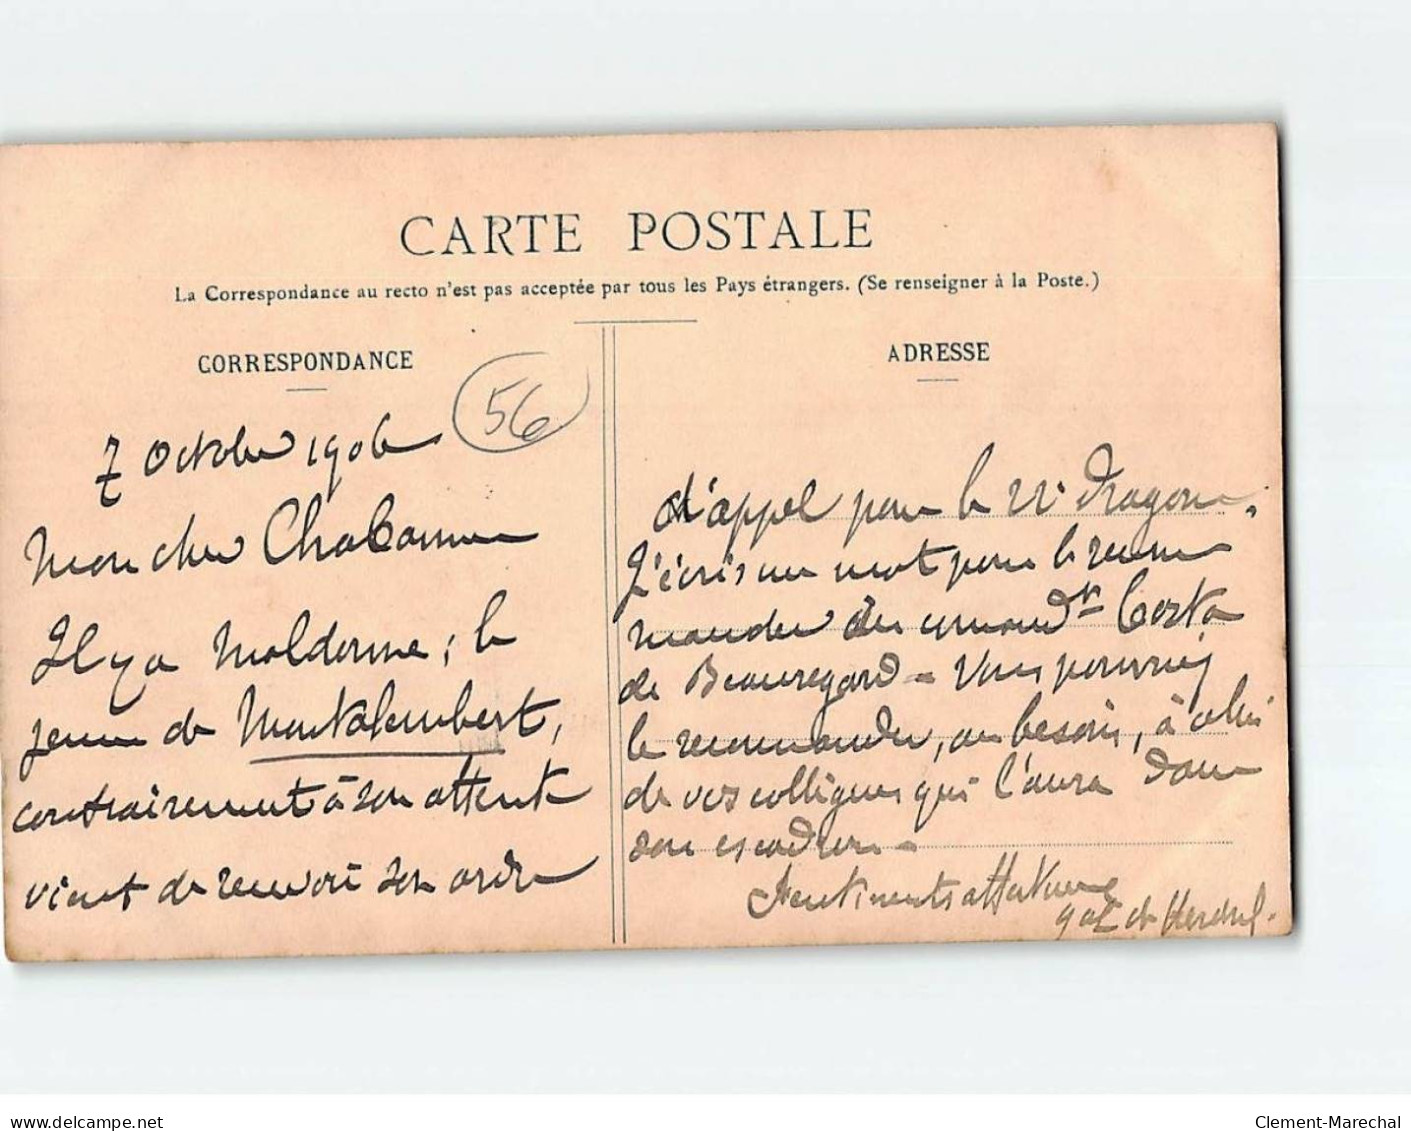 CARTE POSTALE
La Correspondance au recto n'est pas acceptée par tous les Pays étrangers. (Se renseigner à la Poste.)
CORRESPONDANCE
56
7 Octobre 1906
Mon cher Chabannes
Il y a maldonne ; le
jeune de Montalembert,
contrairement à son attente
vient de recevoir son ordre
ADRESSE
d'appel pour le 22e Dragons.
J'écris un mot pour le recom
mander au command^t Costa
de Beauregard - Vous pourriez
le recommander, au besoin, à celui
de vos collègues qui l'aura dans
son escadron -
Sentiments affectueux
G^al de
delcampe.net
Clement-Marechal